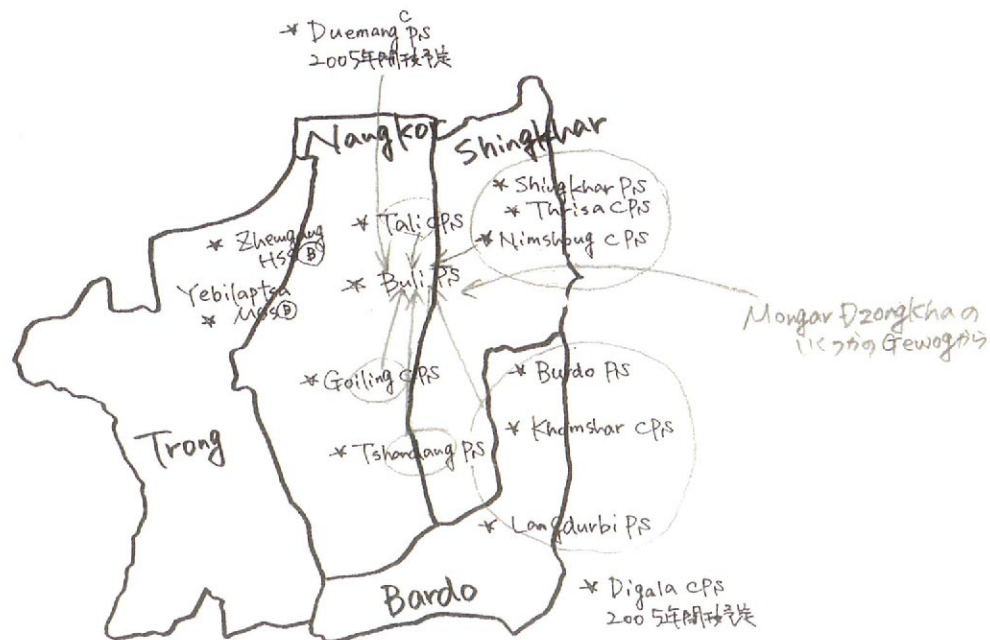 * Duemang CP,S
2005年開校予定
Nangkor
Shingkhar
* Shingkhar P,S
* Thrisa CP,S
* Nimshong CP,S
* Tali CP,S
* Zhemgang
HSS Ⓑ
* Buli P,S
Yebilaptsa
* MSS Ⓑ
Mongar Dzongkhaの
いくつかのGewogから
* Goiling CP,S
* Burdo P,S
* Khomshar CP,S
Trong
* Tshandang P,S
* Langdurbi P,S
Bardo
* Digala CP,S
2005年開校予定